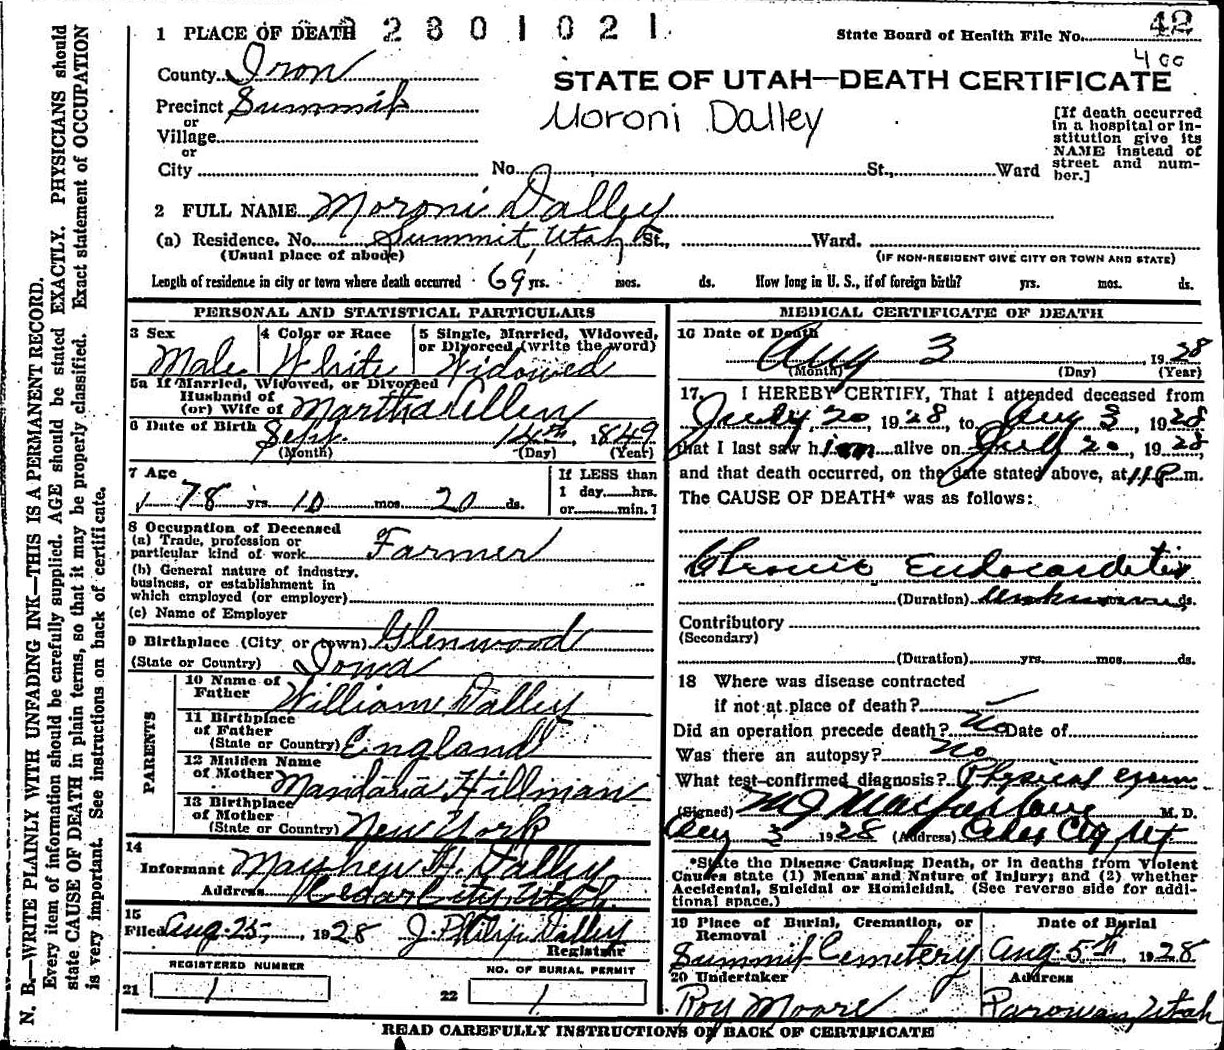 N. B.—WRITE PLAINLY WITH UNFADING INK—THIS IS A PERMANENT RECORD.
Every item of information should be carefully supplied. AGE should be stated EXACTLY. PHYSICIANS should
state CAUSE OF DEATH in plain terms, so that it may be properly classified. Exact statement of OCCUPATION
is very important. See instructions on back of certificate.
1 PLACE OF DEATH 2801021
State Board of Health File No. 42
400
County Iron
STATE OF UTAH—DEATH CERTIFICATE
Precinct Summit
Moroni Dalley
or
Village
or
City No. St., Ward
[If death occurred
in a hospital or in-
stitution give its
NAME instead of
street and num-
ber.]
2 FULL NAME Moroni Dalley
(a) Residence. No. Summit, Utah St., Ward.
(Usual place of abode) (IF NON-RESIDENT GIVE CITY OR TOWN AND STATE)
Length of residence in city or town where death occurred 69 yrs. mos. ds. How long in U. S., if of foreign birth? yrs. mos. ds.
PERSONAL AND STATISTICAL PARTICULARS
3 Sex Male
4 Color or Race White
5 Single, Married, Widowed,
or Divorced (write the word)
Widowed
5a If Married, Widowed, or Divorced
Husband of
(or) Wife of Martha Ellen
6 Date of Birth Sept. 14th, 1849
(Month) (Day) (Year)
7 Age
78 yrs 10 mos. 20 ds.
If LESS than
1 day, hrs.
or min.
8 Occupation of Deceased
(a) Trade, profession or
particular kind of work Farmer
(b) General nature of industry,
business, or establishment in
which employed (or employer)
(c) Name of Employer
9 Birthplace (City or town) Glenwood
(State or Country) Iowa
PARENTS
10 Name of
Father William Dalley
11 Birthplace
of Father
(State or Country) England
12 Maiden Name
of Mother Mandana Hillman
13 Birthplace
of Mother
(State or Country) New York
14
Informant Mayhew H. Dalley
Address Cedar City, Utah
15
Filed Aug. 25, 1928 J. Philip Dalley
Registrar
REGISTERED NUMBER
21 1
NO. OF BURIAL PERMIT
22 1
MEDICAL CERTIFICATE OF DEATH
16 Date of Death
Aug 3, 1928
(Month) (Day) (Year)
17. I HEREBY CERTIFY, That I attended deceased from
July 20, 1928, to Aug 3, 1928
that I last saw him alive on July 20, 1928,
and that death occurred, on the date stated above, at 11 P m.
The CAUSE OF DEATH* was as follows:
Chronic Endocarditis
(Duration) unknown ds.
Contributory
(Secondary)
(Duration) yrs. mos. ds.
18 Where was disease contracted
if not at place of death?
Did an operation precede death? No Date of
Was there an autopsy? No
What test confirmed diagnosis? Physical exam
(Signed) M J Macfarlane M. D.
Aug 3 1928 (Address) Cedar City, Ut
*State the Disease Causing Death, or in deaths from Violent
Causes state (1) Means and Nature of Injury; and (2) whether
Accidental, Suicidal or Homicidal. (See reverse side for addi-
tional space.)
19 Place of Burial, Cremation, or
Removal
Summit Cemetery
Date of Burial
Aug 5th, 1928
20 Undertaker
Roy Moore
Address
Parowan, Utah
READ CAREFULLY INSTRUCTIONS ON BACK OF CERTIFICATE